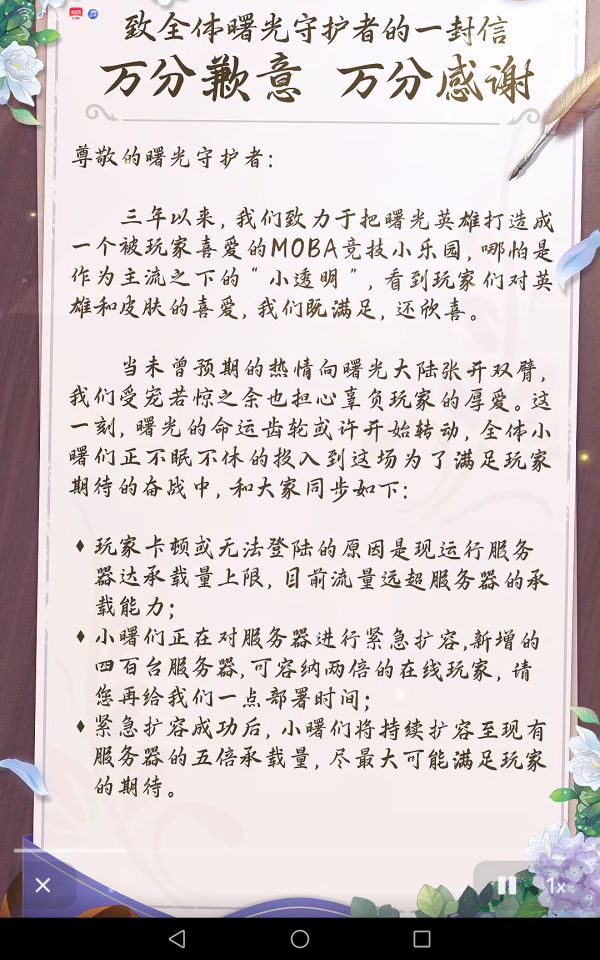 致全体曙光守护者的一封信
万分歉意 万分感谢
尊敬的曙光守护者：
三年以来，我们致力于把曙光英雄打造成
一个被玩家喜爱的MOBA竞技小乐园，哪怕是
作为主流之下的“小透明”，看到玩家们对英
雄和皮肤的喜爱，我们既满足，还欣喜。
当未曾预期的热情向曙光大陆张开双臂，
我们受宠若惊之余也担心辜负玩家的厚爱。这
一刻，曙光的命运齿轮或许开始转动，全体小
曙们正不眠不休的投入到这场为了满足玩家
期待的奋战中，和大家同步如下：
♦玩家卡顿或无法登陆的原因是现运行服务
器达承载量上限，目前流量远超服务器的承
载能力；
♦小曙们正在对服务器进行紧急扩容,新增的
四百台服务器,可容纳两倍的在线玩家，请
您再给我们一点部署时间；
♦紧急扩容成功后，小曙们将持续扩容至现有
服务器的五倍承载量，尽最大可能满足玩家
的期待。
1x